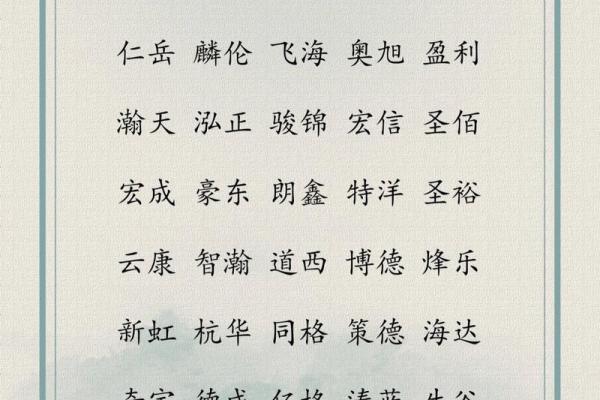 仁岳 麟伦 飞海 奥旭 盈利
瀚天 泓正 骏锦 宏信 圣佰
宏成 豪东 朗鑫 特洋 圣裕
云康 智瀚 道西 博德 烽乐
新虹 杭华 同格 策德 海达